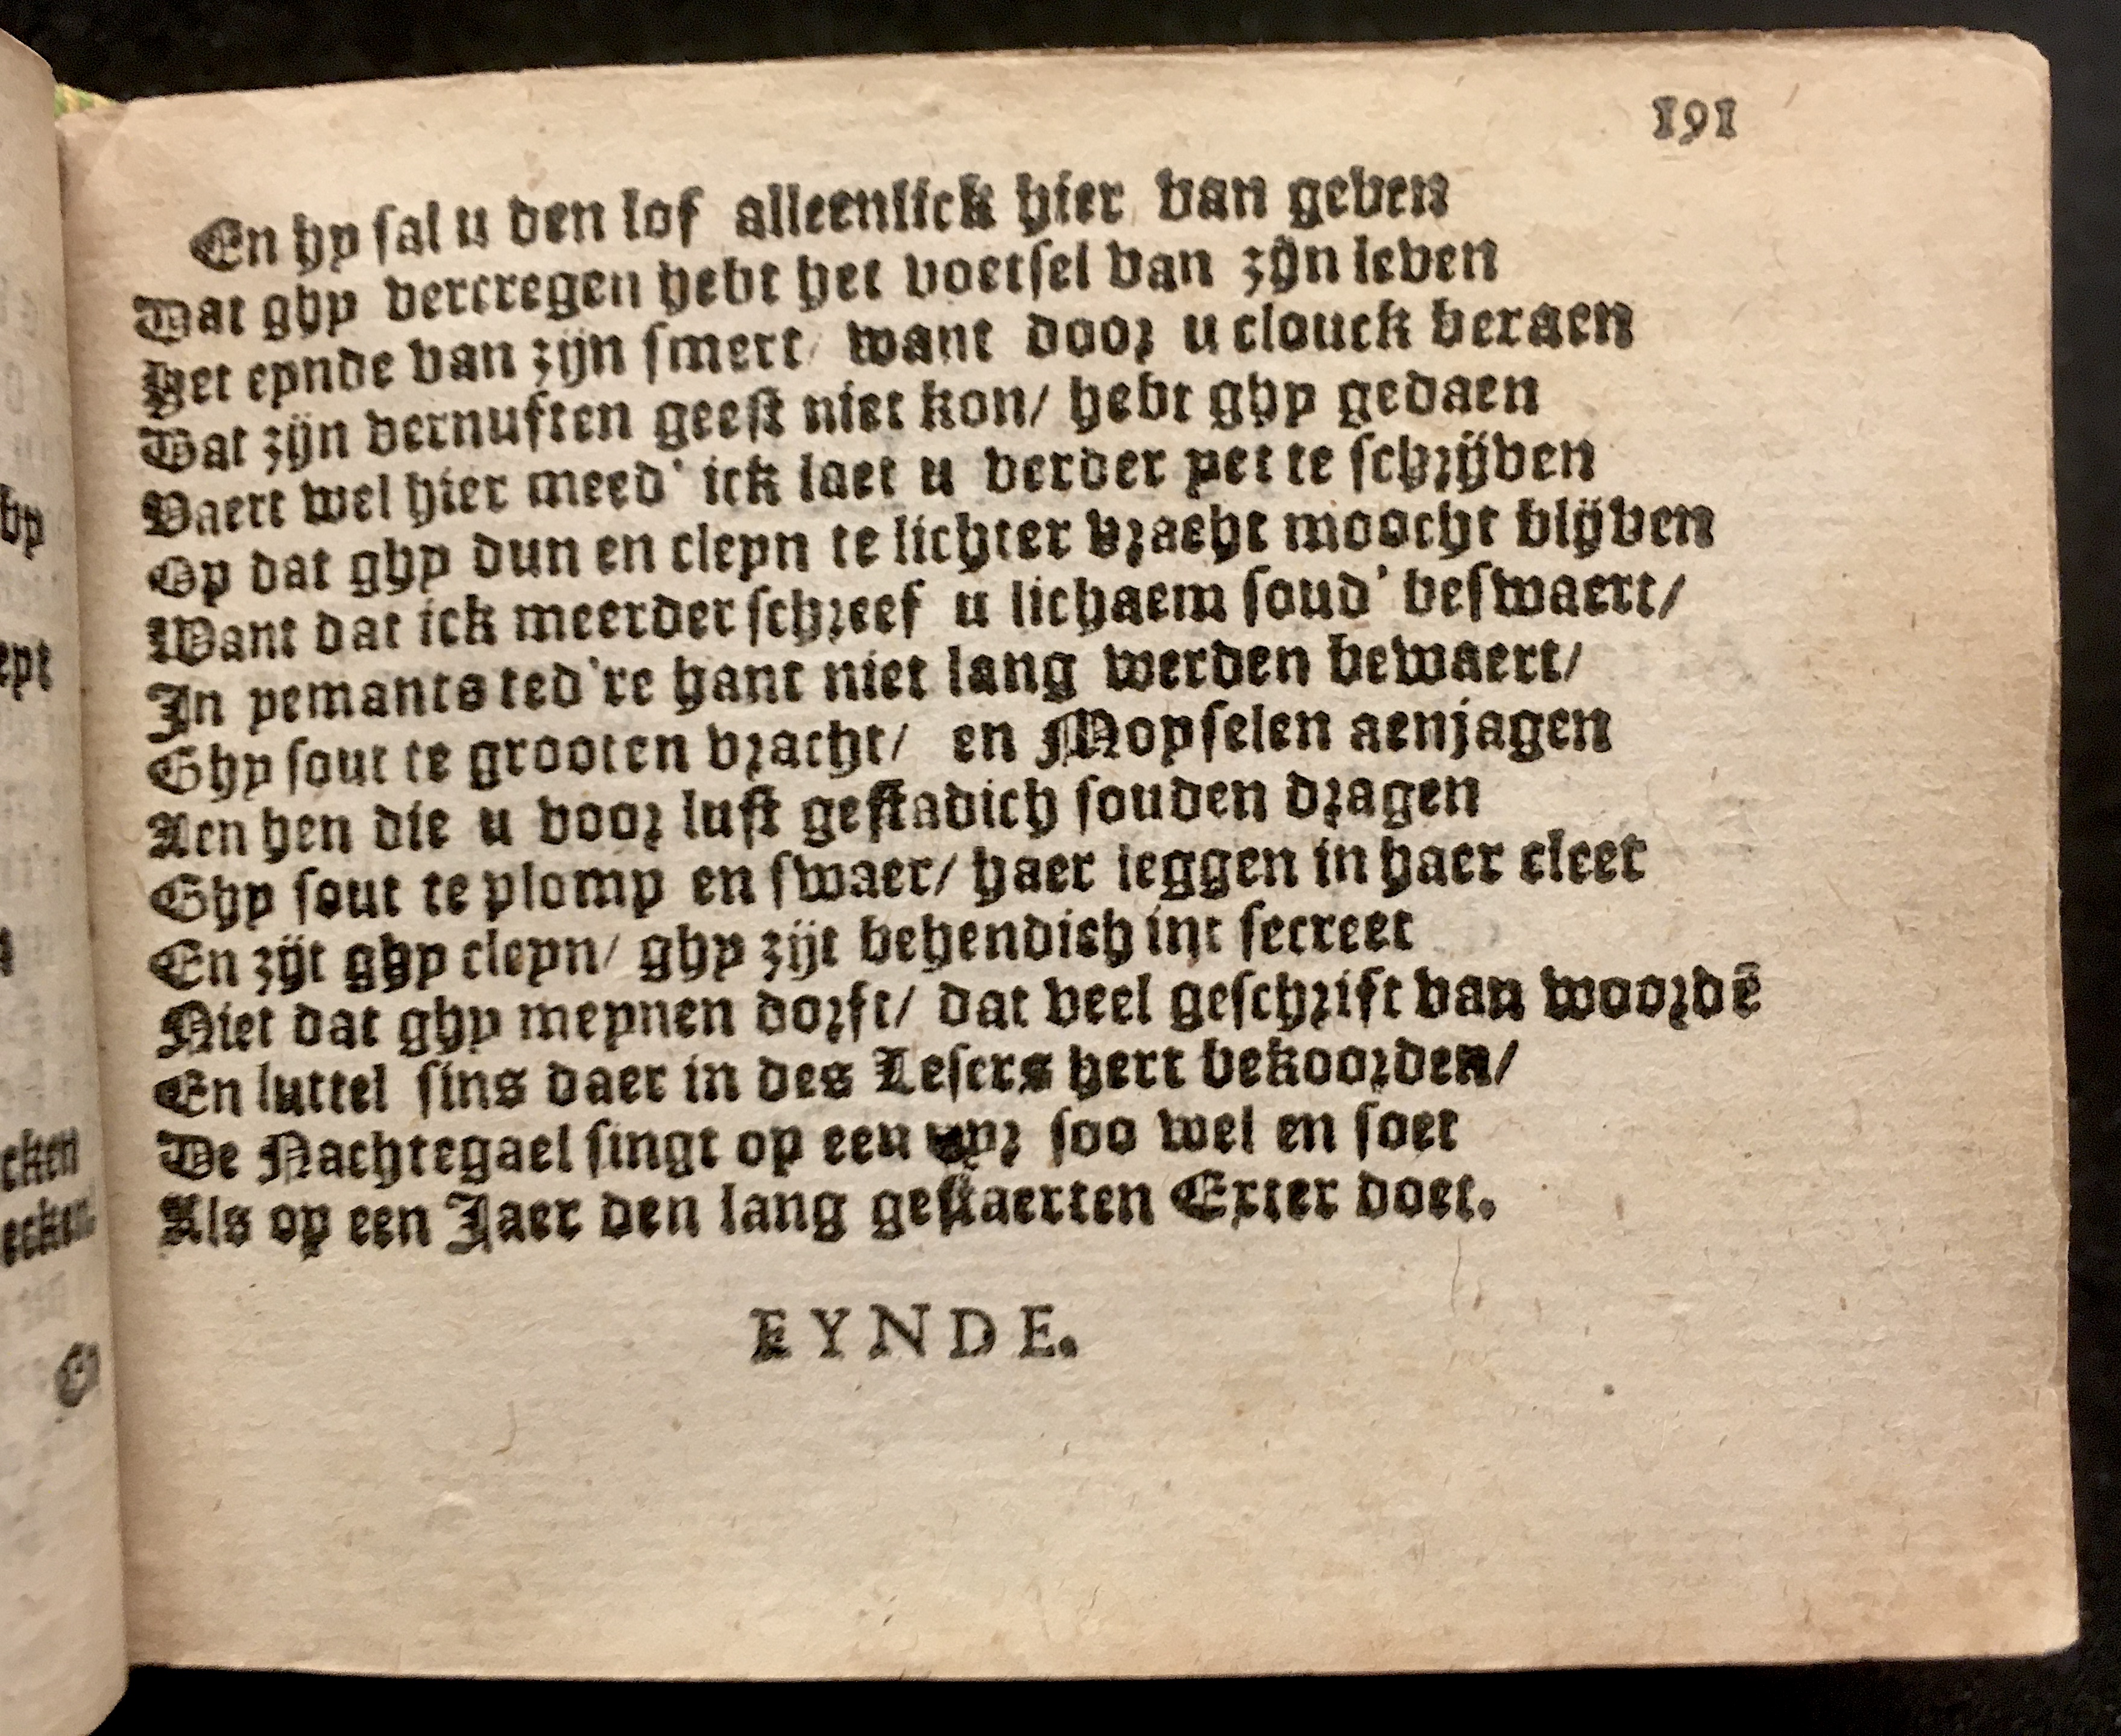 191
En hy sal u den lof alleenlick hier van geven
Dat ghy vercregen hebt het voetsel van zijn leven
Het eynde van zijn smert/ want door u clouck beraen
Dat zijn vernuften geest niet kon/ hebt ghy gedaen
Vaert wel hier meed' ick laet u verder yet te schrijven
Op dat ghy dun en cleyn te lichter vracht moocht blijven
Want dat ick meerder schreef u lichaem soud' beswaert/
In yemants ted're hant niet lang werden bewaert/
Ghy sout te grooten vracht/ en Moyselen aenjagen
Aen hen die u voor lust gestadich souden dragen
Ghy sout te plomp en swaer/ haer leggen in haer cleet
En zijt ghy cleyn/ ghy zijt behendich int secreet
Niet dat ghy meynen dorft/ dat veel geschrift van woordē
En luttel sins daer in des Lesers hert bekoorden/
De Nachtegael singt op een uyr soo wel en soet
Als op een Jaer den lang gestaerten Exter doet.
EYNDE.
hy
ept
cken
ecken.
E